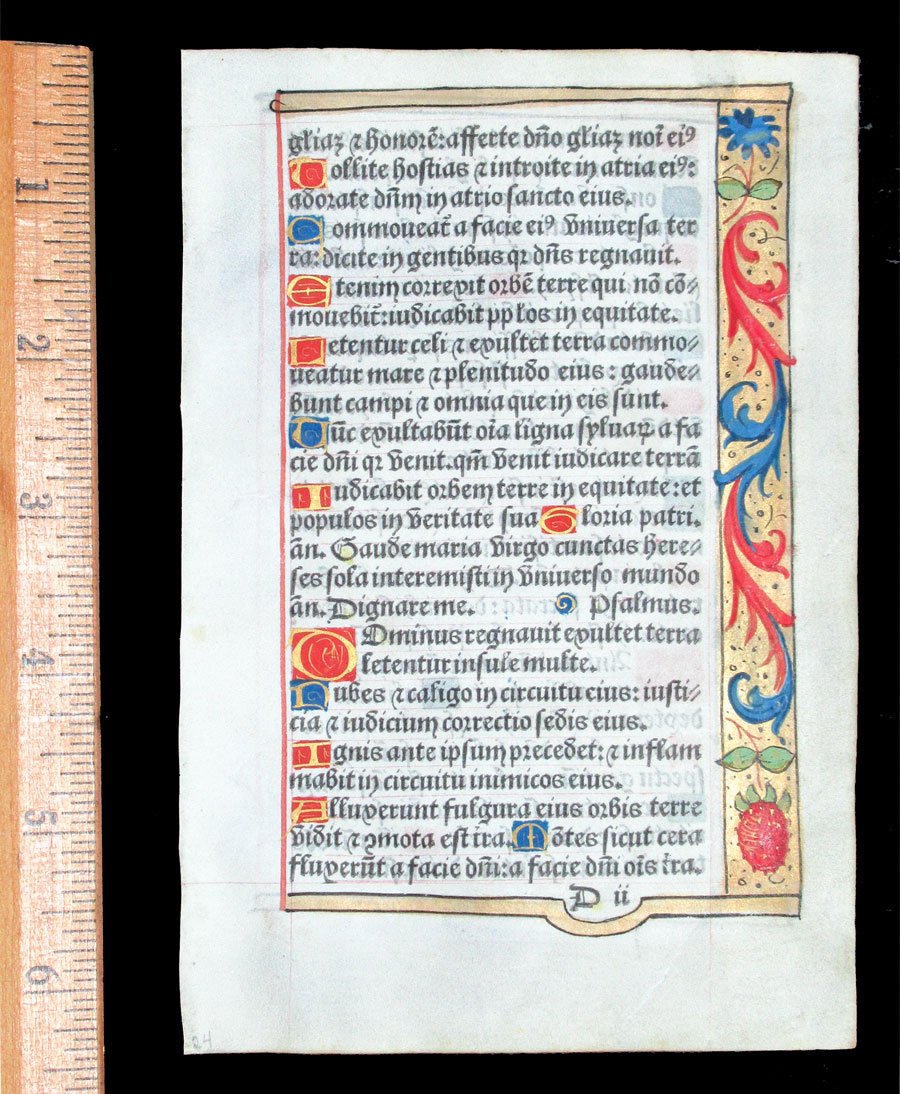 głiaꝫ ⁊ honorē: afferte dño głiaꝫ noī eiꝰ
Tollite hostias ⁊ introite in atria eiꝰ:
adorate dñm in atrio sancto eius.
Commoueat̄ a facie eiꝰ vniuersa ter
ra: dicite in gentibus qꝛ dñs regnauit.
Etenim correxit orbē terre qui nō cō⸗
mouebit̄: iudicabit pp̄los in equitate.
Letentur celi ⁊ exultet terra commo⸗
ueatur mare ⁊ plenitudo eius: gaude⸗
bunt campi ⁊ omnia que in eis sunt.
Tūc exultabūt oīa ligna syluaꝝ a fa
cie dñi qꝛ venit. qm̄ venit iudicare terrā
Iudicabit orbem terre in equitate: et
populos in veritate sua Gloria patri.
añ. Gaude maria virgo cunctas here⸗
ses sola interemisti in vniuerso mundo
añ. Dignare me. Psalmus.
Dominus regnauit exultet terra
letentur insule multe.
Nubes ⁊ caligo in circuitu eius: iusti⸗
cia ⁊ iudicium correctio sedis eius.
Ignis ante ipsum precedet: ⁊ inflam
mabit in circuitu inimicos eius.
Alluxerunt fulgura eius orbis terre
vidit ⁊ ꝯmota est t̄ra. Mōtes sicut cera
fluxerūt a facie dñi: a facie dñi oīs t̄ra.
D ii
1
2
3
4
5
6
24